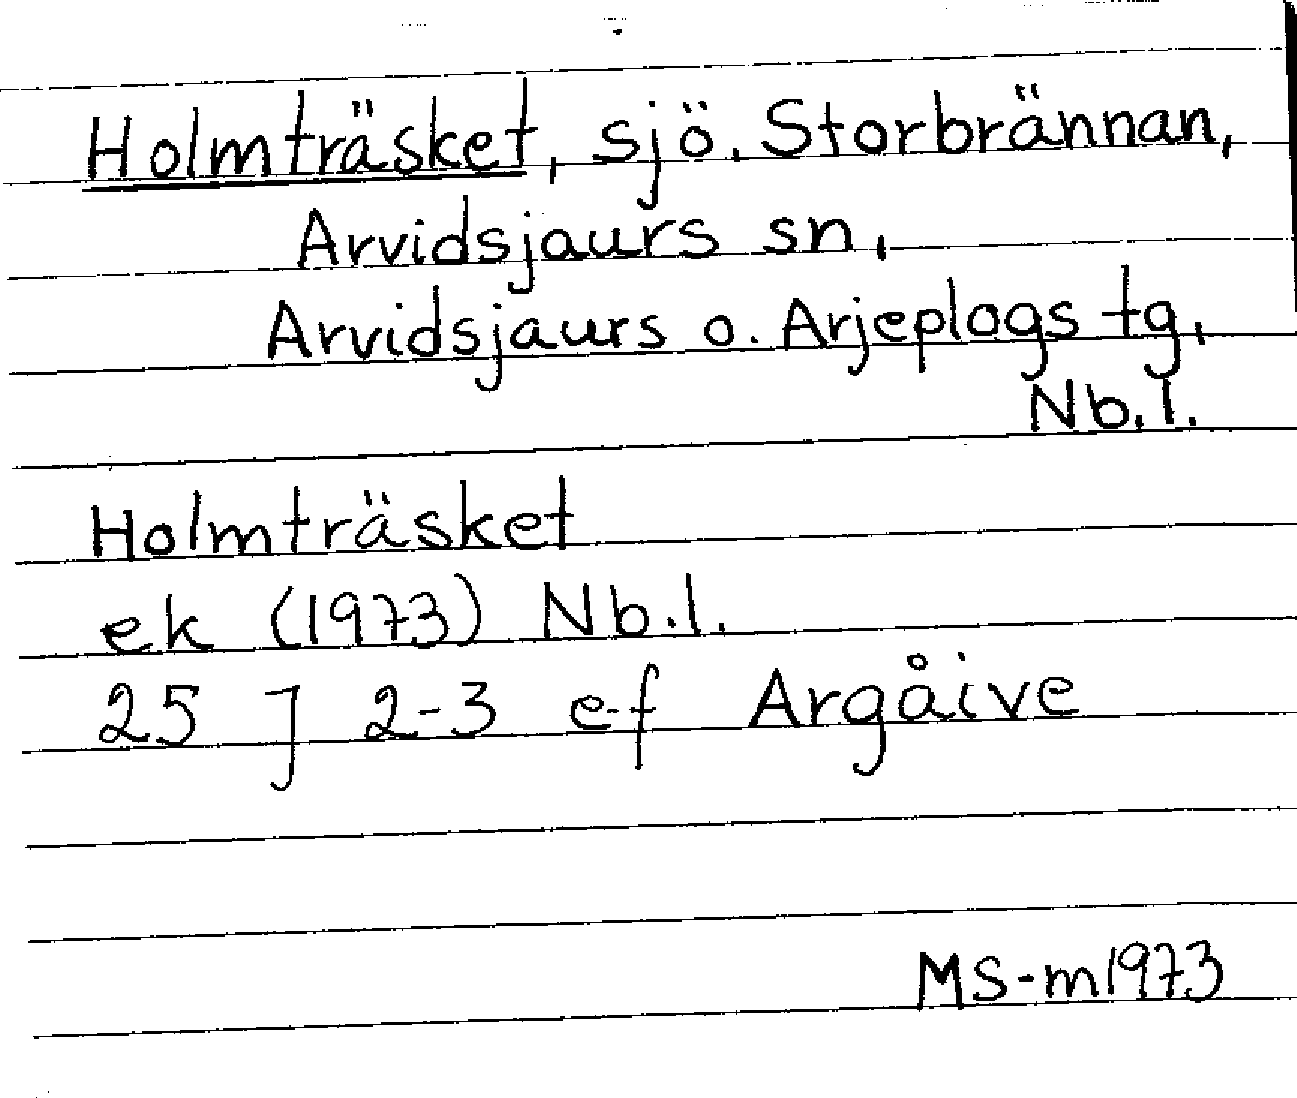 Holmträsket, sjö. Storbrännan,
Arvidsjaurs sn,
Arvidsjaurs o. Arjeplogs tg,
Nb.l.
Holmträsket
ek (1973) Nb.l.
25 J 2-3 ef Argåive
MS-m1973